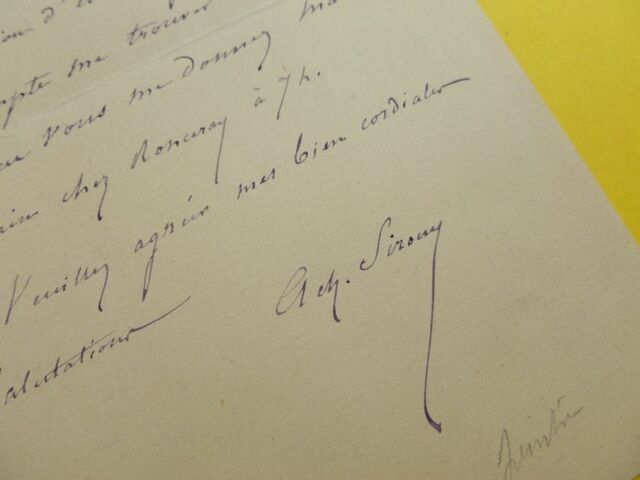 me trouver
vous me donnez
chez Ronceray à 7h.
Veuillez agréer mes bien cordiales
salutations
Ach. Sirouy
peintre